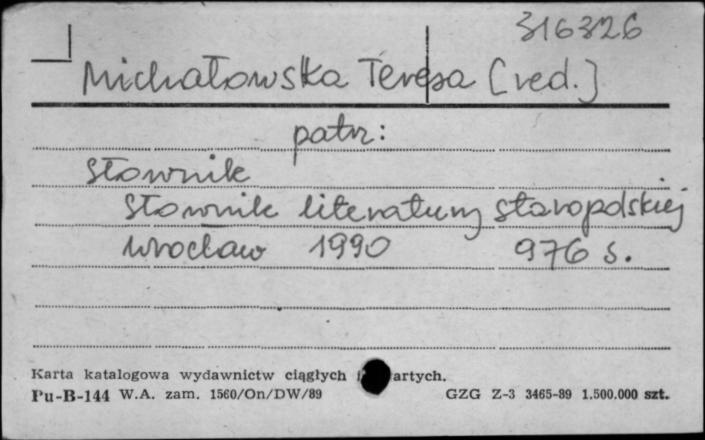 316326
Michałowska Teresa [red.]
patrz:
Słownik
Słownik literatury staropolskiej
Wrocław 1990 976 s.
Karta katalogowa wydawnictw ciągłych artych.
Pu-B-144 W.A. zam. 1560/On/DW/89 GZG Z-3 3465-89 1.500.000 szt.